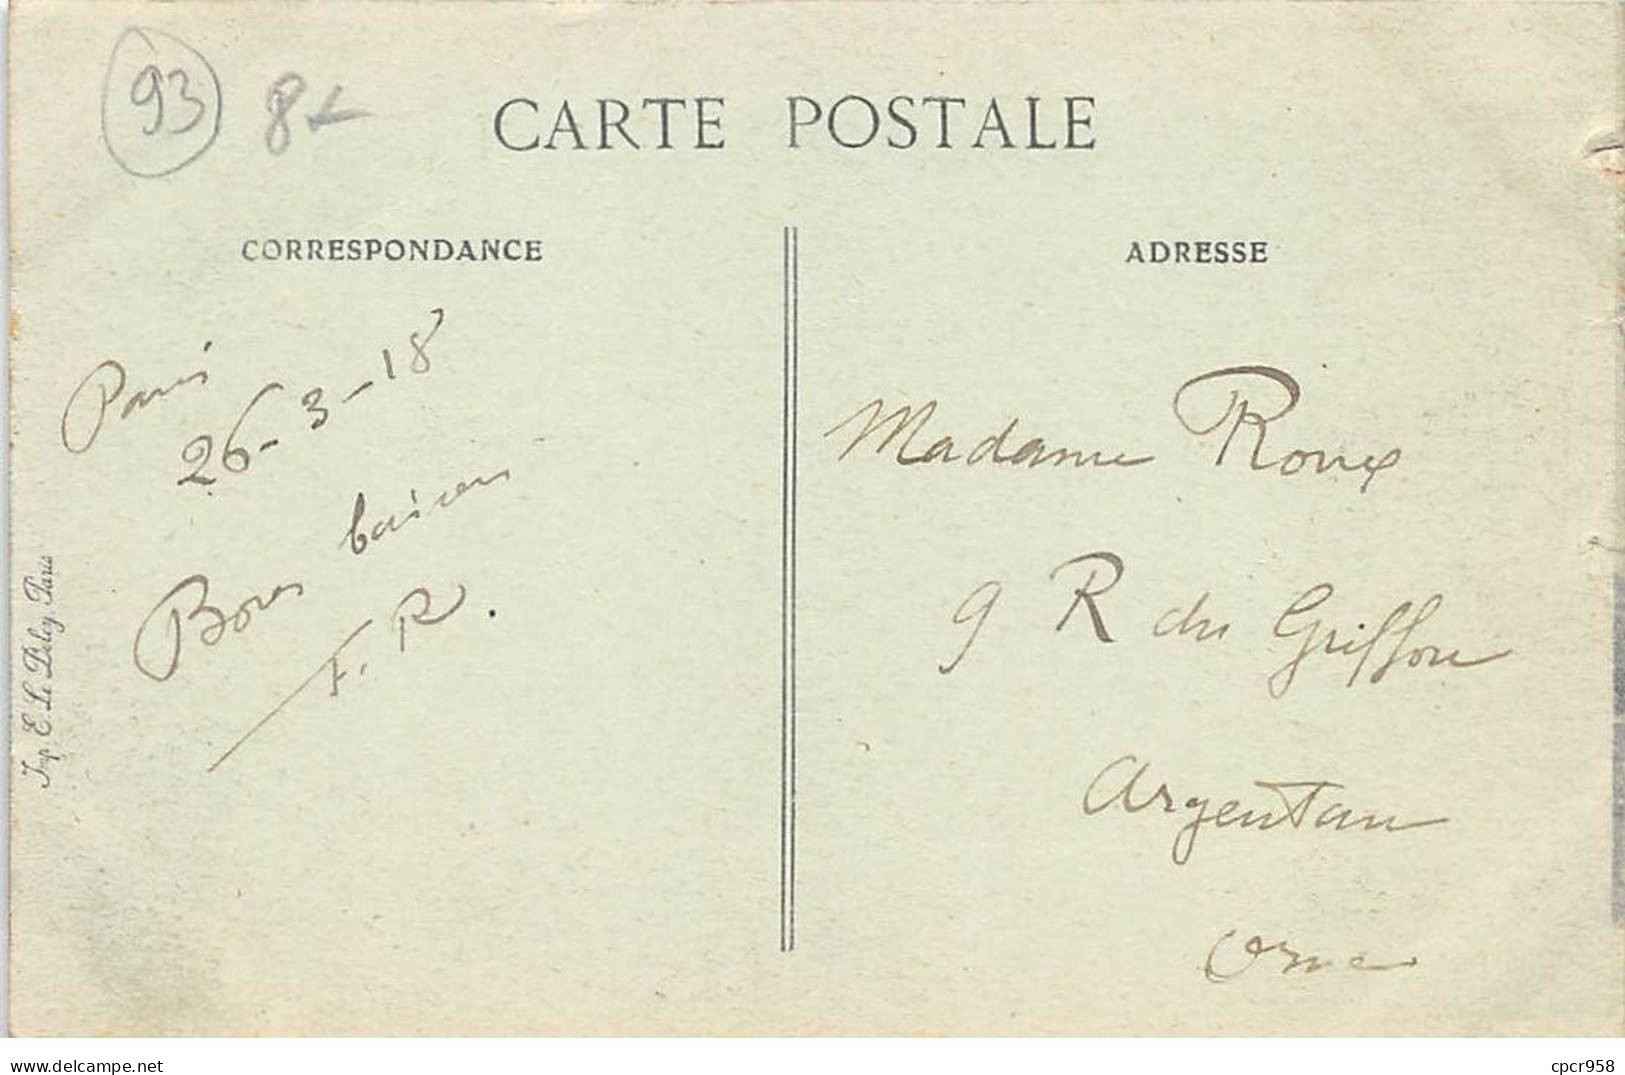 93 8
CARTE POSTALE
CORRESPONDANCE
Paris
26-3-18
Bons baisers
F. R.
Imp. E. Le Deley, Paris
ADRESSE
Madame Roux
9 R du Griffon
Argentan
Orne
delcampe.net
cpcr958